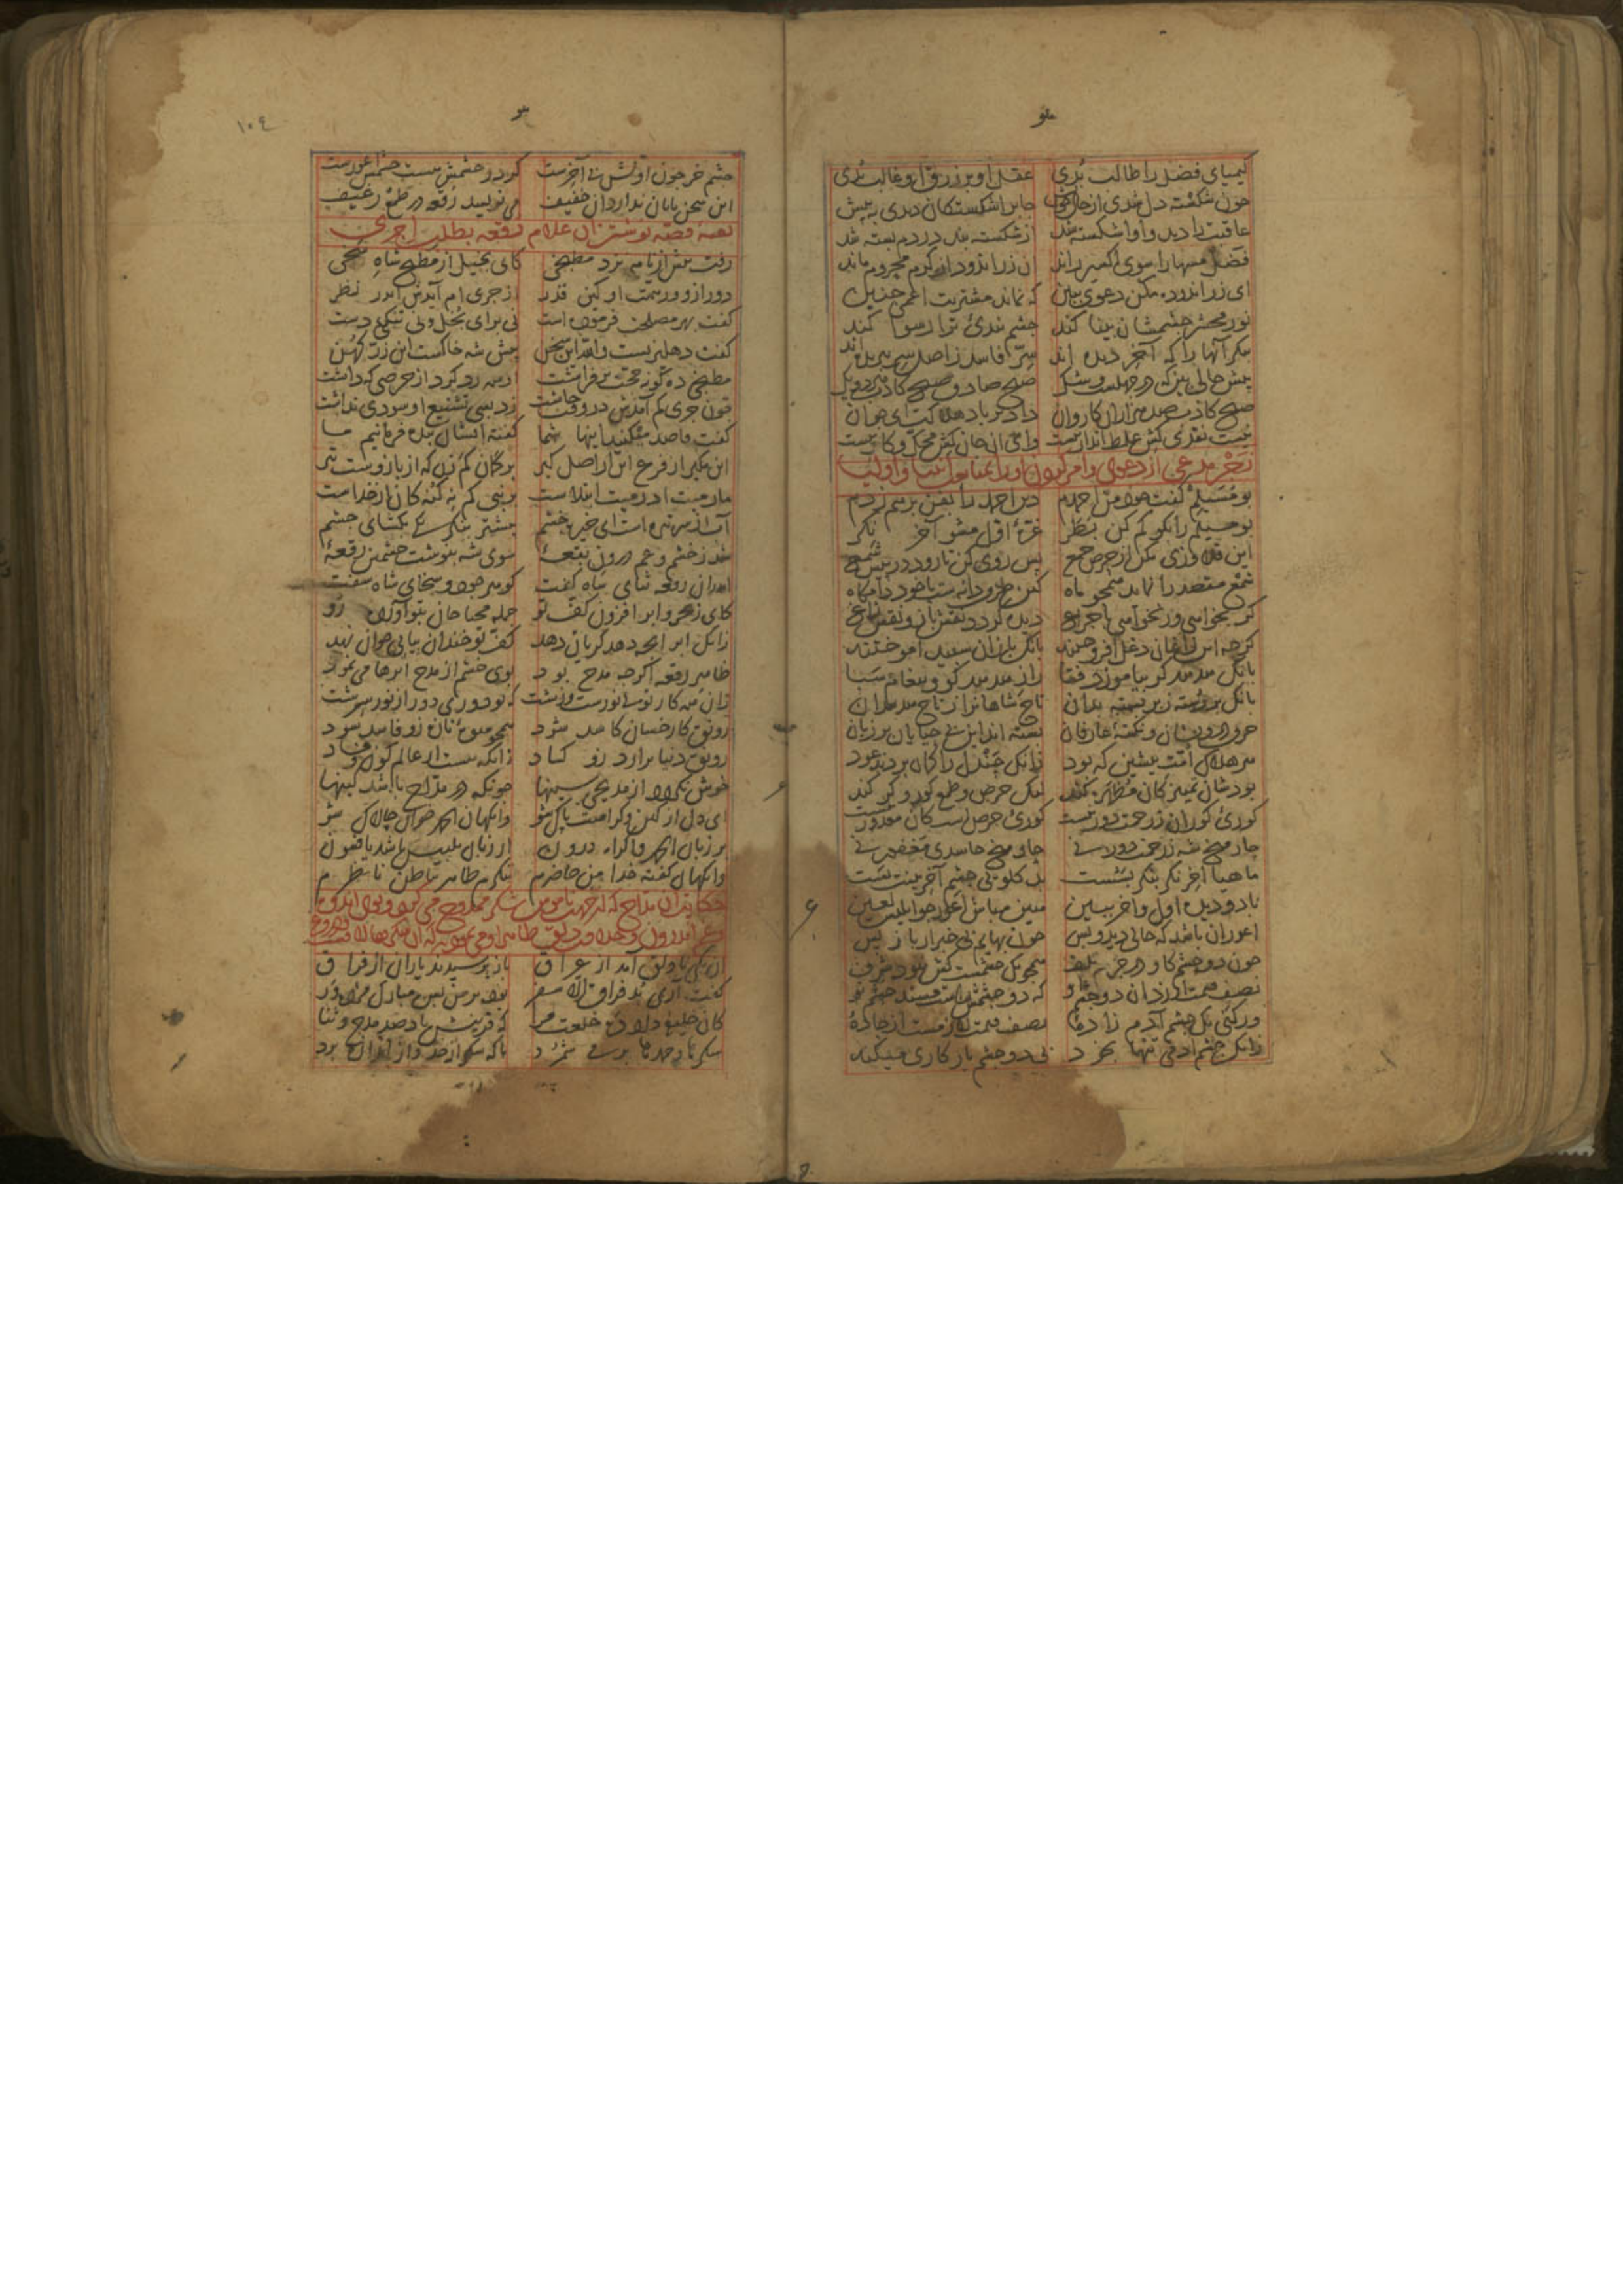 کیمیای فضل را طالب بدی عقل او بر زرق او غالب بدی
چون شکسته دل شدی از حال خویش جابر اشکستگان دیدی به پیش
عاقبت را دید و او اشکسته شد از شکسته بند در دم بسته شد
فضل مسها را سوی اکسیر راند آن زراندود از کرم محروم ماند
ای زراندوده مکن دعوی ببین که نماند مشتریت اعمی چنین
نور محشر چشمشان بینا کند چشم بندی ترا رسوا کند
بنکر آنها را که آخر دیده اند
پیش حالی بین که در جهلست و شک صبح صادق صبح کاذب
صبح کاذب صد هزاران کاروان داد بر باد هلاکت ای جوان
نیست نقدی کش غلط انداز نیست وای آن جان کش محک و کاز نیست
بو مسیلم کفت خود من احمدم دین احمد را بفن برهم زدم
بو مسیلم را بکو کم کن بطر غره اول مشو آخر نکر
این قلاوزی مکن از حرص جمع پس روی کن تا رود در پیش شمع
شمع مقصد را نماید همچو ماه کین طرف دانه ست یا خود دامکاه
کر بخواهی ور نخواهی با چراغ دیده کردد نقش باز و نقش زاغ
کرچه این زاغان دغل افروختند بانک بازان سپید آموختند
بانک هدهد کر بیاموزد فتا راز هدهد کو و پیغام سبا
بانک بر رسته ز بر بسته بدان تاج شاهان را ز تاج هدهدان
حرف درویشان و نکته عارفان بسته اند این بی حیایان بر زبان
هر هلاک امت پیشین که بود زانک چندل را کمان بردند عود
بودشان تمییز کان مظهر کند لیک حرص و طمع کور و کر کند
کوری کوران ز رحمت دور نیست کوری حرص است کان معذور نیست
چار میخ شه ز رحمت دور نی چار میخ حاسدی مغفور نی
ماهیا آخر نکر بنکر بشست بد کلویی چشم آخر بینت بست
با دو دیده اول و آخر ببین هین مباش اعور چو ابلیس لعین
اعور آن باشد که حالی دید و بس چون بهایم بی خبر از باز پس
چون دو چشم کاو در جرم تلف همچو یک چشمست کش نبود شرف
نصف قیمت ارزد آن دو چشم او که دو چشمش راست مسند چشم تو
ور کنی یک چشم آدم زاده نصف قیمت لازمست از جاده
زانک چشم آدمی تنها بخود بی دو چشم یار کاری میکند
چشم خر چون اولش بی آخرست کر دو چشمش هست حکمش اعورست
این سخن پایان ندارد آن خفیف می نویسد رقعه در طمع رغیف
بقیه قصه نوشتن آن غلام رقعه بطلب اجری
رفت پیش از نامه نزد مطبخی کای بخیل از مطبخ شاه سخی
دور ازو وز همت او کین قدر از جری ام آیدش اندر نظر
کفت بهر مصلحت فرموده است نی برای بخل و نی تنکی دست
کفت دهلیزیست والله این سخن پیش شه خاکست این زر کهن
مطبخی ده کونه حجت بر فراشت او همه رد کرد از حرصی که داشت
چون جری کم آمدش در وقت چاشت زد بسی تشنیع او سودی نداشت
کفت قاصد میکنید اینها شما کفت نی که بنده فرمانیم ما
این مکیر از فرع این از اصل کیر بر کمان کم زن که از بازوست تیر
ما رمیت اذ رمیت ابتلاست بر نبی کم نه کنه کان از خداست
آب از سر تیره است ای خیره خشم پیشتر بنکر یکی بکشای چشم
شد ز خشم و غم درون بقعه سوی شه بنوشت خشمین رقعه
اندر آن رقعه ثنای شاه کفت کوهر جود و سخای شاه سفت
کای ز بحر و ابر افزون کف تو
زانک ابر آنچه دهد کریان دهد کف تو خندان پیاپی خوان نهد
ظاهر رقعه اکرچه مدح بود بوی خشم از مدح اثرها می نمود
زان همه کار تو بی نورست و زشت که تو دوری دور از نور سرشت
رونق کار خسان کاسد شود همچو میوه تازه زو فاسد شود
رونق دنیا برآرد زو کساد زانکه هست از عالم کون و فساد
خوش نکردد از مدیحی سینها چونکه در مداح باشد کینها
ای دل از کین و کراهت پاک شو وانکهان الحمد خوان چالاک شو
بر زبان الحمد و اکراه درون از زبان تلبیس باشد یا فسون
وانکهان کفته خدا من حاضرم ننکرم ظاهر بباطن ناظرم
آن یکی با دلق آمد از عراق باز پرسیدند یاران از فراق
کفت آری بد فراق الا سفر بود بر من بس مبارک مژده ور
کان خلیفه داد ده خلعت مرا که قرینش باد صد مدح و ثنا
شکرها و حمدها بر می شمرد تا که شکر از حد و از اندازه برد